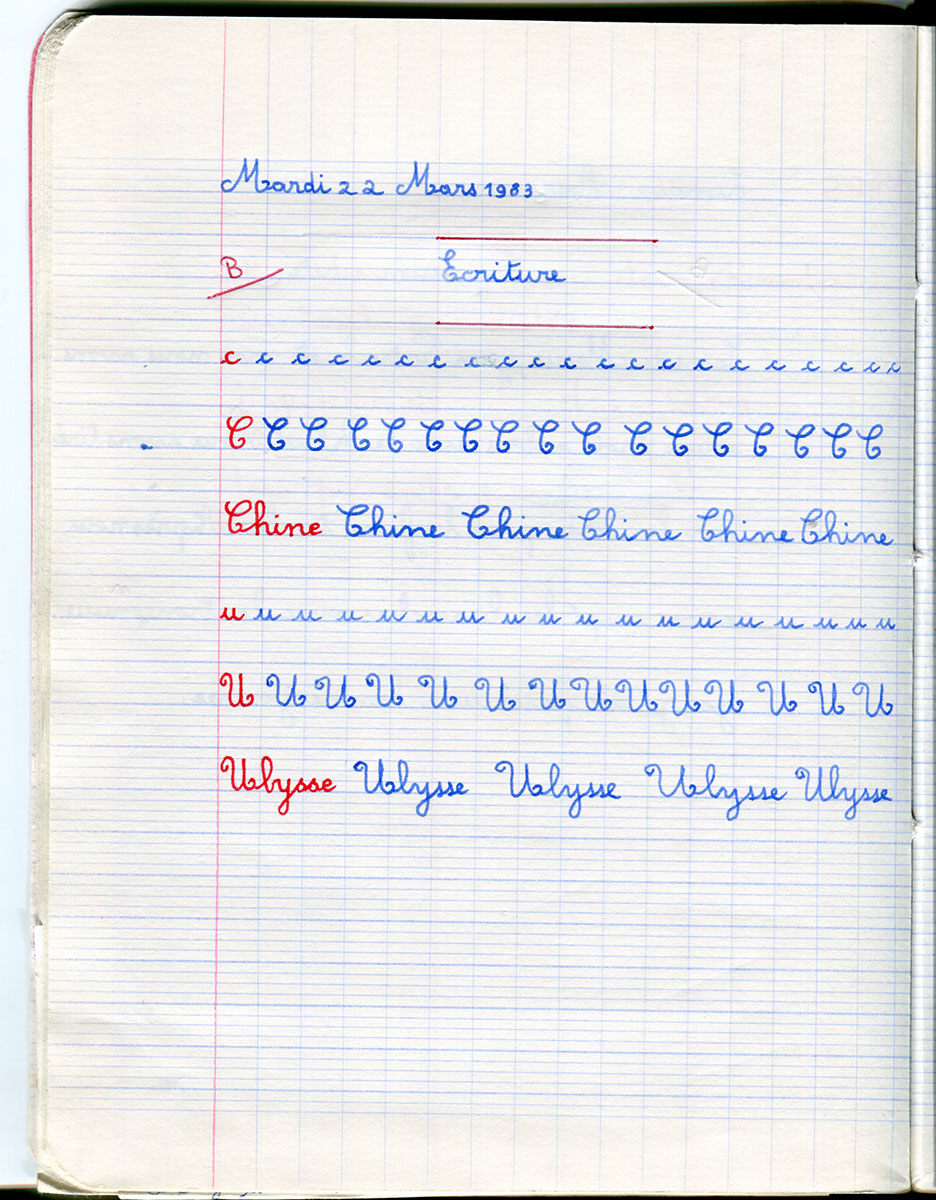 Mardi 22 Mars 1983
B Ecriture
c c c c c c c c c c c c c c c c c c c c c
C C C C C C C C C C C C C C C C C
Chine Chine Chine Chine Chine Chine
u u u u u u u u u u u u u u u u u u
U U U U U U U U U U U U U U
Ulysse Ulysse Ulysse Ulysse Ulysse